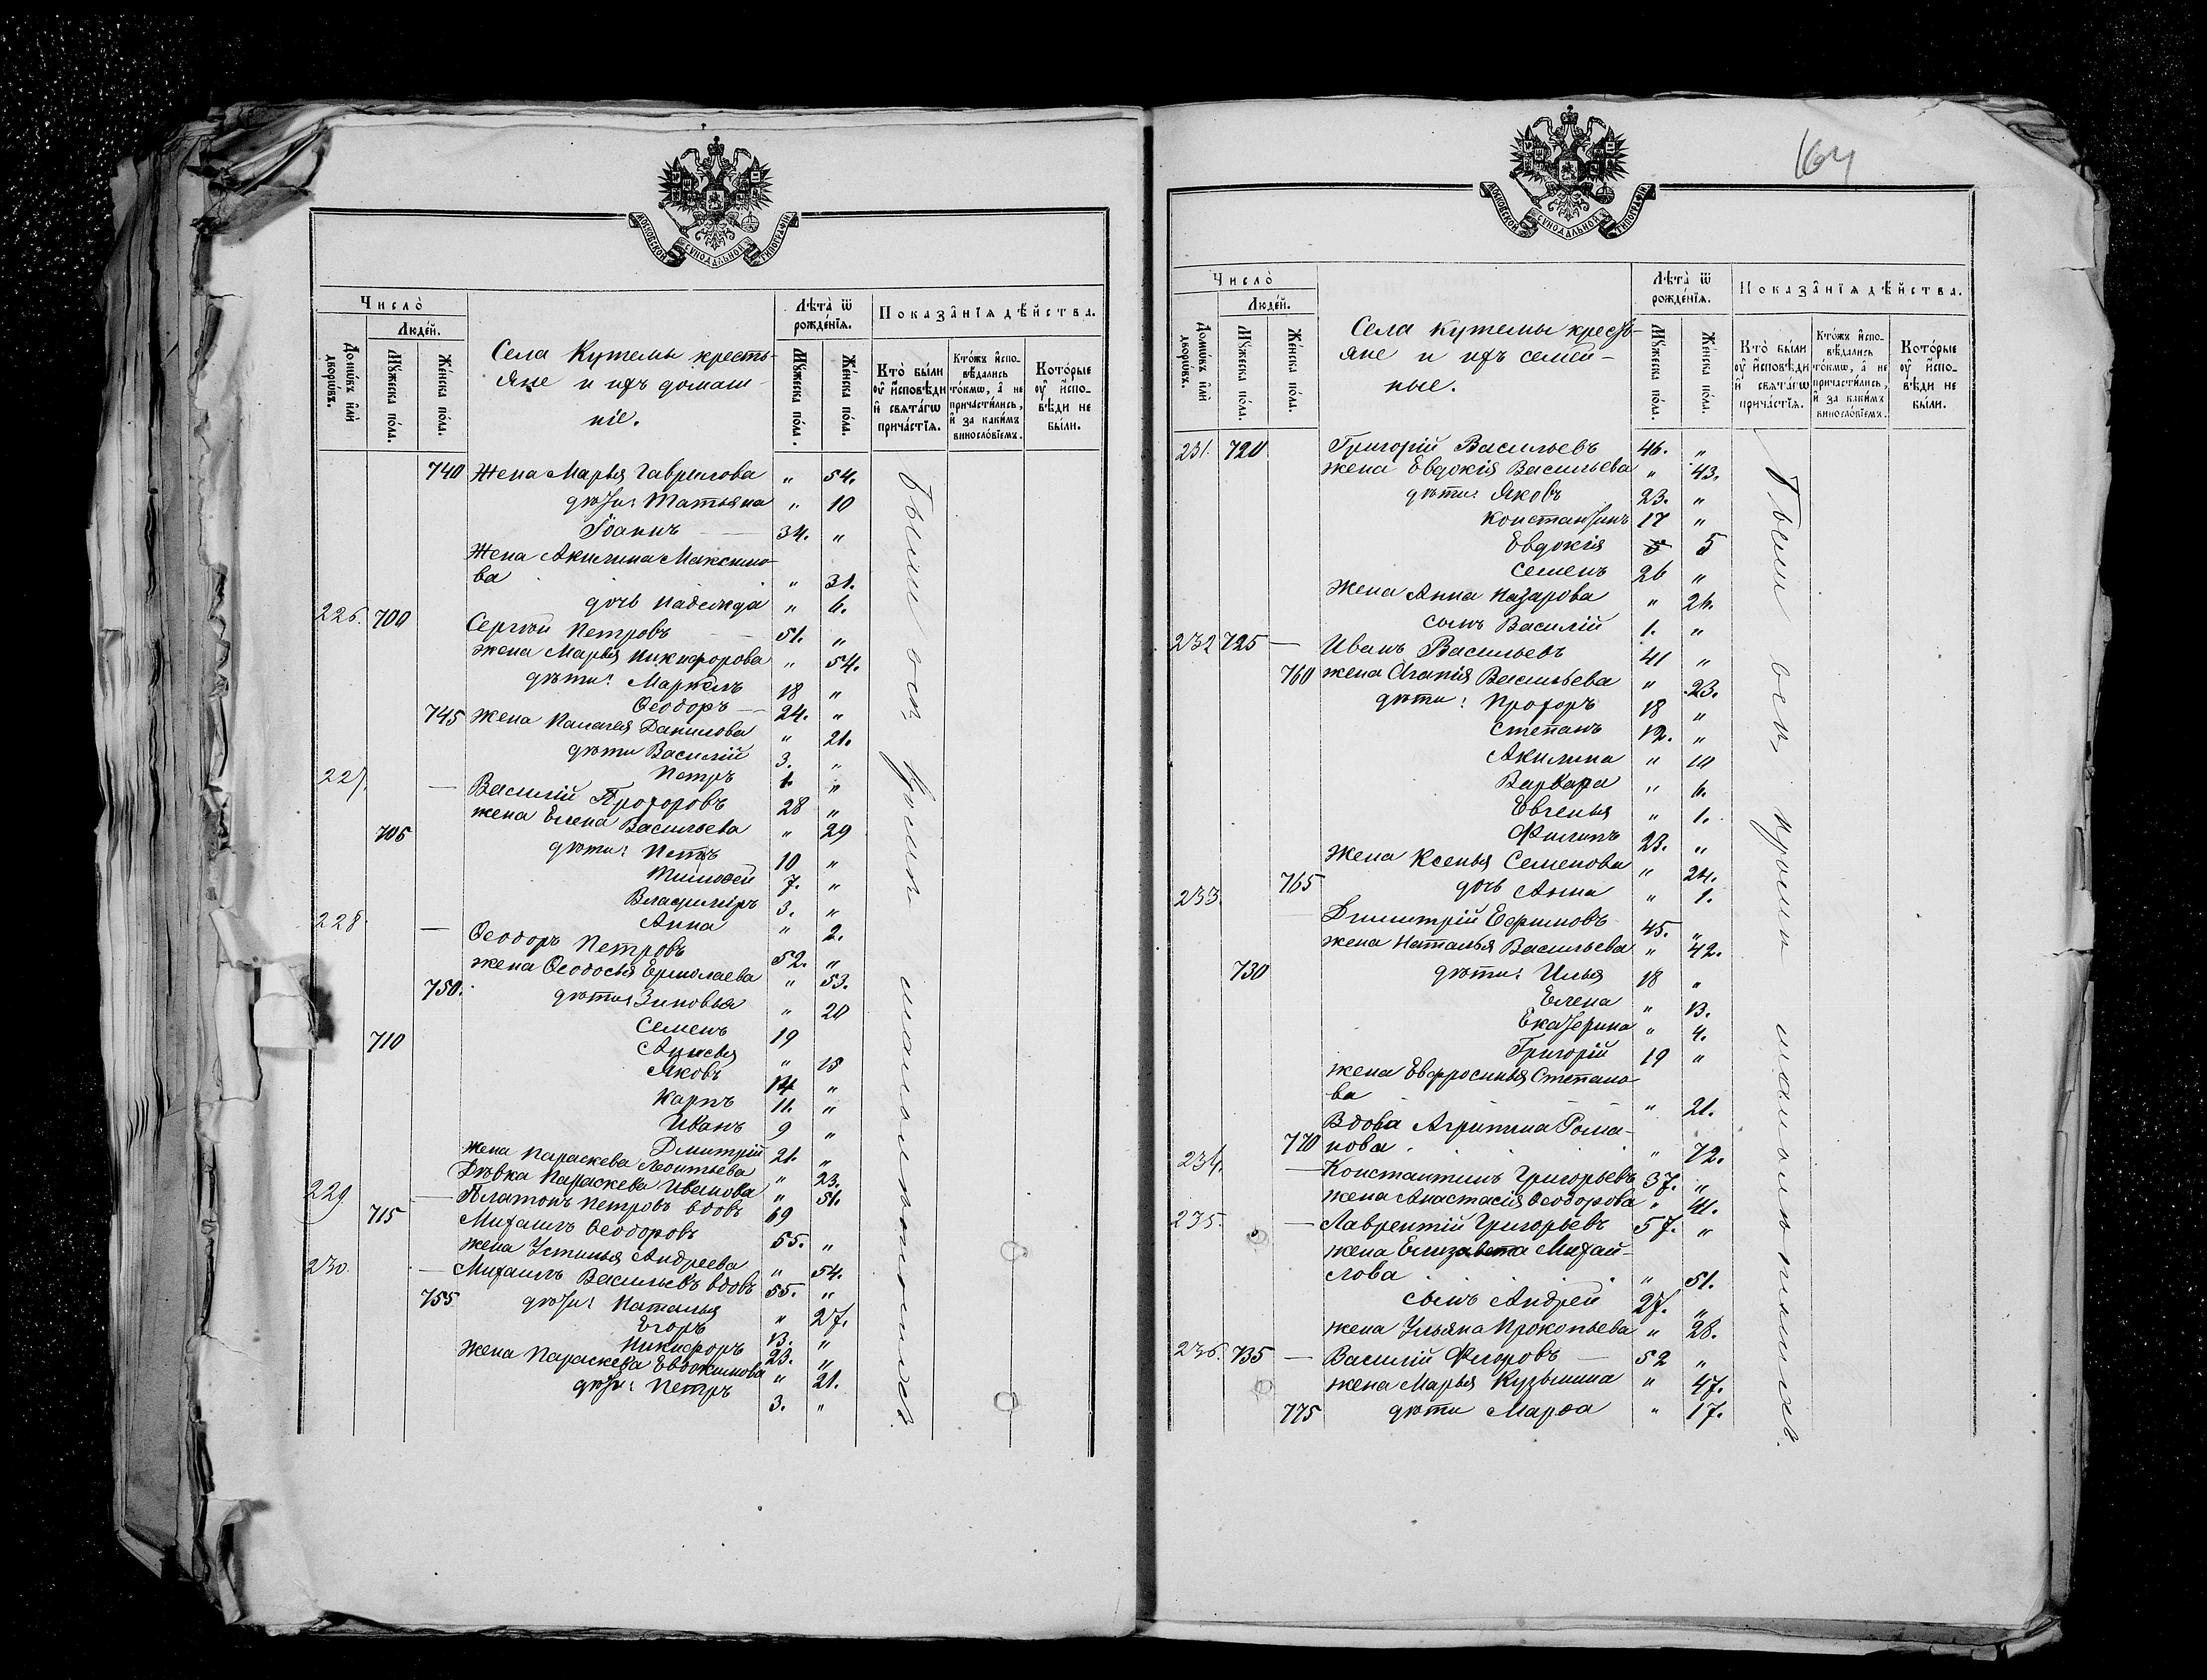 МОСКОВСКОЙ СѴНОДАЛЬНОЙ ТИПОГРАФІИ
Число̀
Людей.
Домѡвъ и҆лѝ дворѡвъ.
Мꙋ́жеска по́ла.
Же́нска по́ла.
Села Кутемы кресть-
яне и ихъ домаш-
ніе.
Лѣ́та ѿ рожде́нїѧ.
Мꙋ́жеска по́ла.
Же́нска по́ла.
Показа̂нїѧ дѣ́йства.
Кто̀ бы́ли ᲂу҆ и҆сповѣ́ди и҆ свѧта́гѡ прича́стїѧ.
Кто́жъ и҆спо-вѣ́дались то́кмѡ, а҆ не причасти́лись, и҆ за каки́мъ винослѡ́вїемъ.
Кото́рые ᲂу҆ и҆спо-вѣ́ди не бы́ли.
740 Жена Марья Гаврилова " 54.
дѣти: Татьяна " 10
Іоаннъ 34. "
Жена Акилина Максимо-
ва " 31.
дочь Надежда " 6.
226. 700 Сергѣй Петровъ 51. "
жена Марья Никифорова " 54.
дѣти: Маркелъ 18 "
Ѳеодоръ 24. "
745 жена Палагея Данилова " 21.
дѣти Василій 3. "
Петръ 1. "
227. — Василій Прохоровъ 28 "
жена Елена Васильева " 29
705 дѣти: Петръ 10 "
Тимоѳей 7. "
Владиміръ 3. "
Анна " 2.
228. — Ѳеодоръ Петровъ 52. "
жена Ѳеодосья Ермолаева " 53.
750. дѣти: Зиновья " 20
Семенъ 19
710 Анисья " 15
Яковъ 14 "
Карпъ 11. "
Иванъ 9 "
Дмитрій 21. "
жена Параскева Леонтьева " 23.
Дѣвка Параскева Иванова " 51.
229 — Платонъ Петровъ вдовъ 69
715 Михаилъ Ѳеодоровъ 55. "
жена Устинья Андреева " 54.
230. — Михаилъ Васильевъ вдовъ 55. "
755 дѣти: Наталья " 27.
Егоръ 13. "
Никифоръ 23. "
жена Параскева Евдокимова " 21.
дѣти: Петръ 3. "
Были всѣ кромѣ малолѣтнихъ.
164
МОСКОВСКОЙ СѴНОДАЛЬНОЙ ТИПОГРАФІИ
Число̀
Людей.
Домѡвъ и҆лѝ дворѡвъ.
Мꙋ́жеска по́ла.
Же́нска по́ла.
Села Кутемы кресть-
яне и ихъ семей-
ные.
Лѣ́та ѿ рожде́нїѧ.
Мꙋ́жеска по́ла.
Же́нска по́ла.
Показа̂нїѧ дѣ́йства.
Кто̀ бы́ли ᲂу҆ и҆сповѣ́ди и҆ свѧта́гѡ прича́стїѧ.
Кто́жъ и҆спо-вѣ́дались то́кмѡ, а҆ не причасти́лись, и҆ за каки́мъ винослѡ́вїемъ.
Кото́рые ᲂу҆ и҆спо-вѣ́ди не бы́ли.
231. 720 Григорій Васильевъ 46. "
жена Евдокія Васильева " 43.
дѣти: Яковъ 23. "
Константинъ 17 "
Евдокія 5
Семенъ 26 "
Жена Анна Назарова " 26.
сынъ Василій 1. "
232 725 — Иванъ Васильевъ 41 "
760 жена Агапія Васильева " 23.
дѣти: Прохоръ 18 "
Степанъ 12. "
Акилина " 10
Варвара " 6.
Евгенья " 1.
Филипъ 23. "
жена Ксенья Семенова " 24.
765 дочь Анна " 1.
233. Димитрій Ефимовъ 45. "
жена Наталья Васильева " 42.
730 дѣти: Илья 18 "
Елена " 13.
Екатерина " 4.
Григорій 19 "
жена Евфросинья Степано-
ва " 21.
Вдова Агрипина Рома-
770 нова " 72.
234. — Константинъ Григорьевъ 37. "
жена Анастасія Ѳеодорова " 41.
235. — Лаврентій Григорьевъ 57. "
жена Елизавета Михай-
лова " 51.
сынъ Андрей 27. "
жена Ульяна Прокопьева " 28.
236. 735 — Василій Флоровъ 52 "
жена Марья Кузьмина " 47.
775 дѣти Марѳа " 17.
Были всѣ кромѣ малолѣтнихъ.